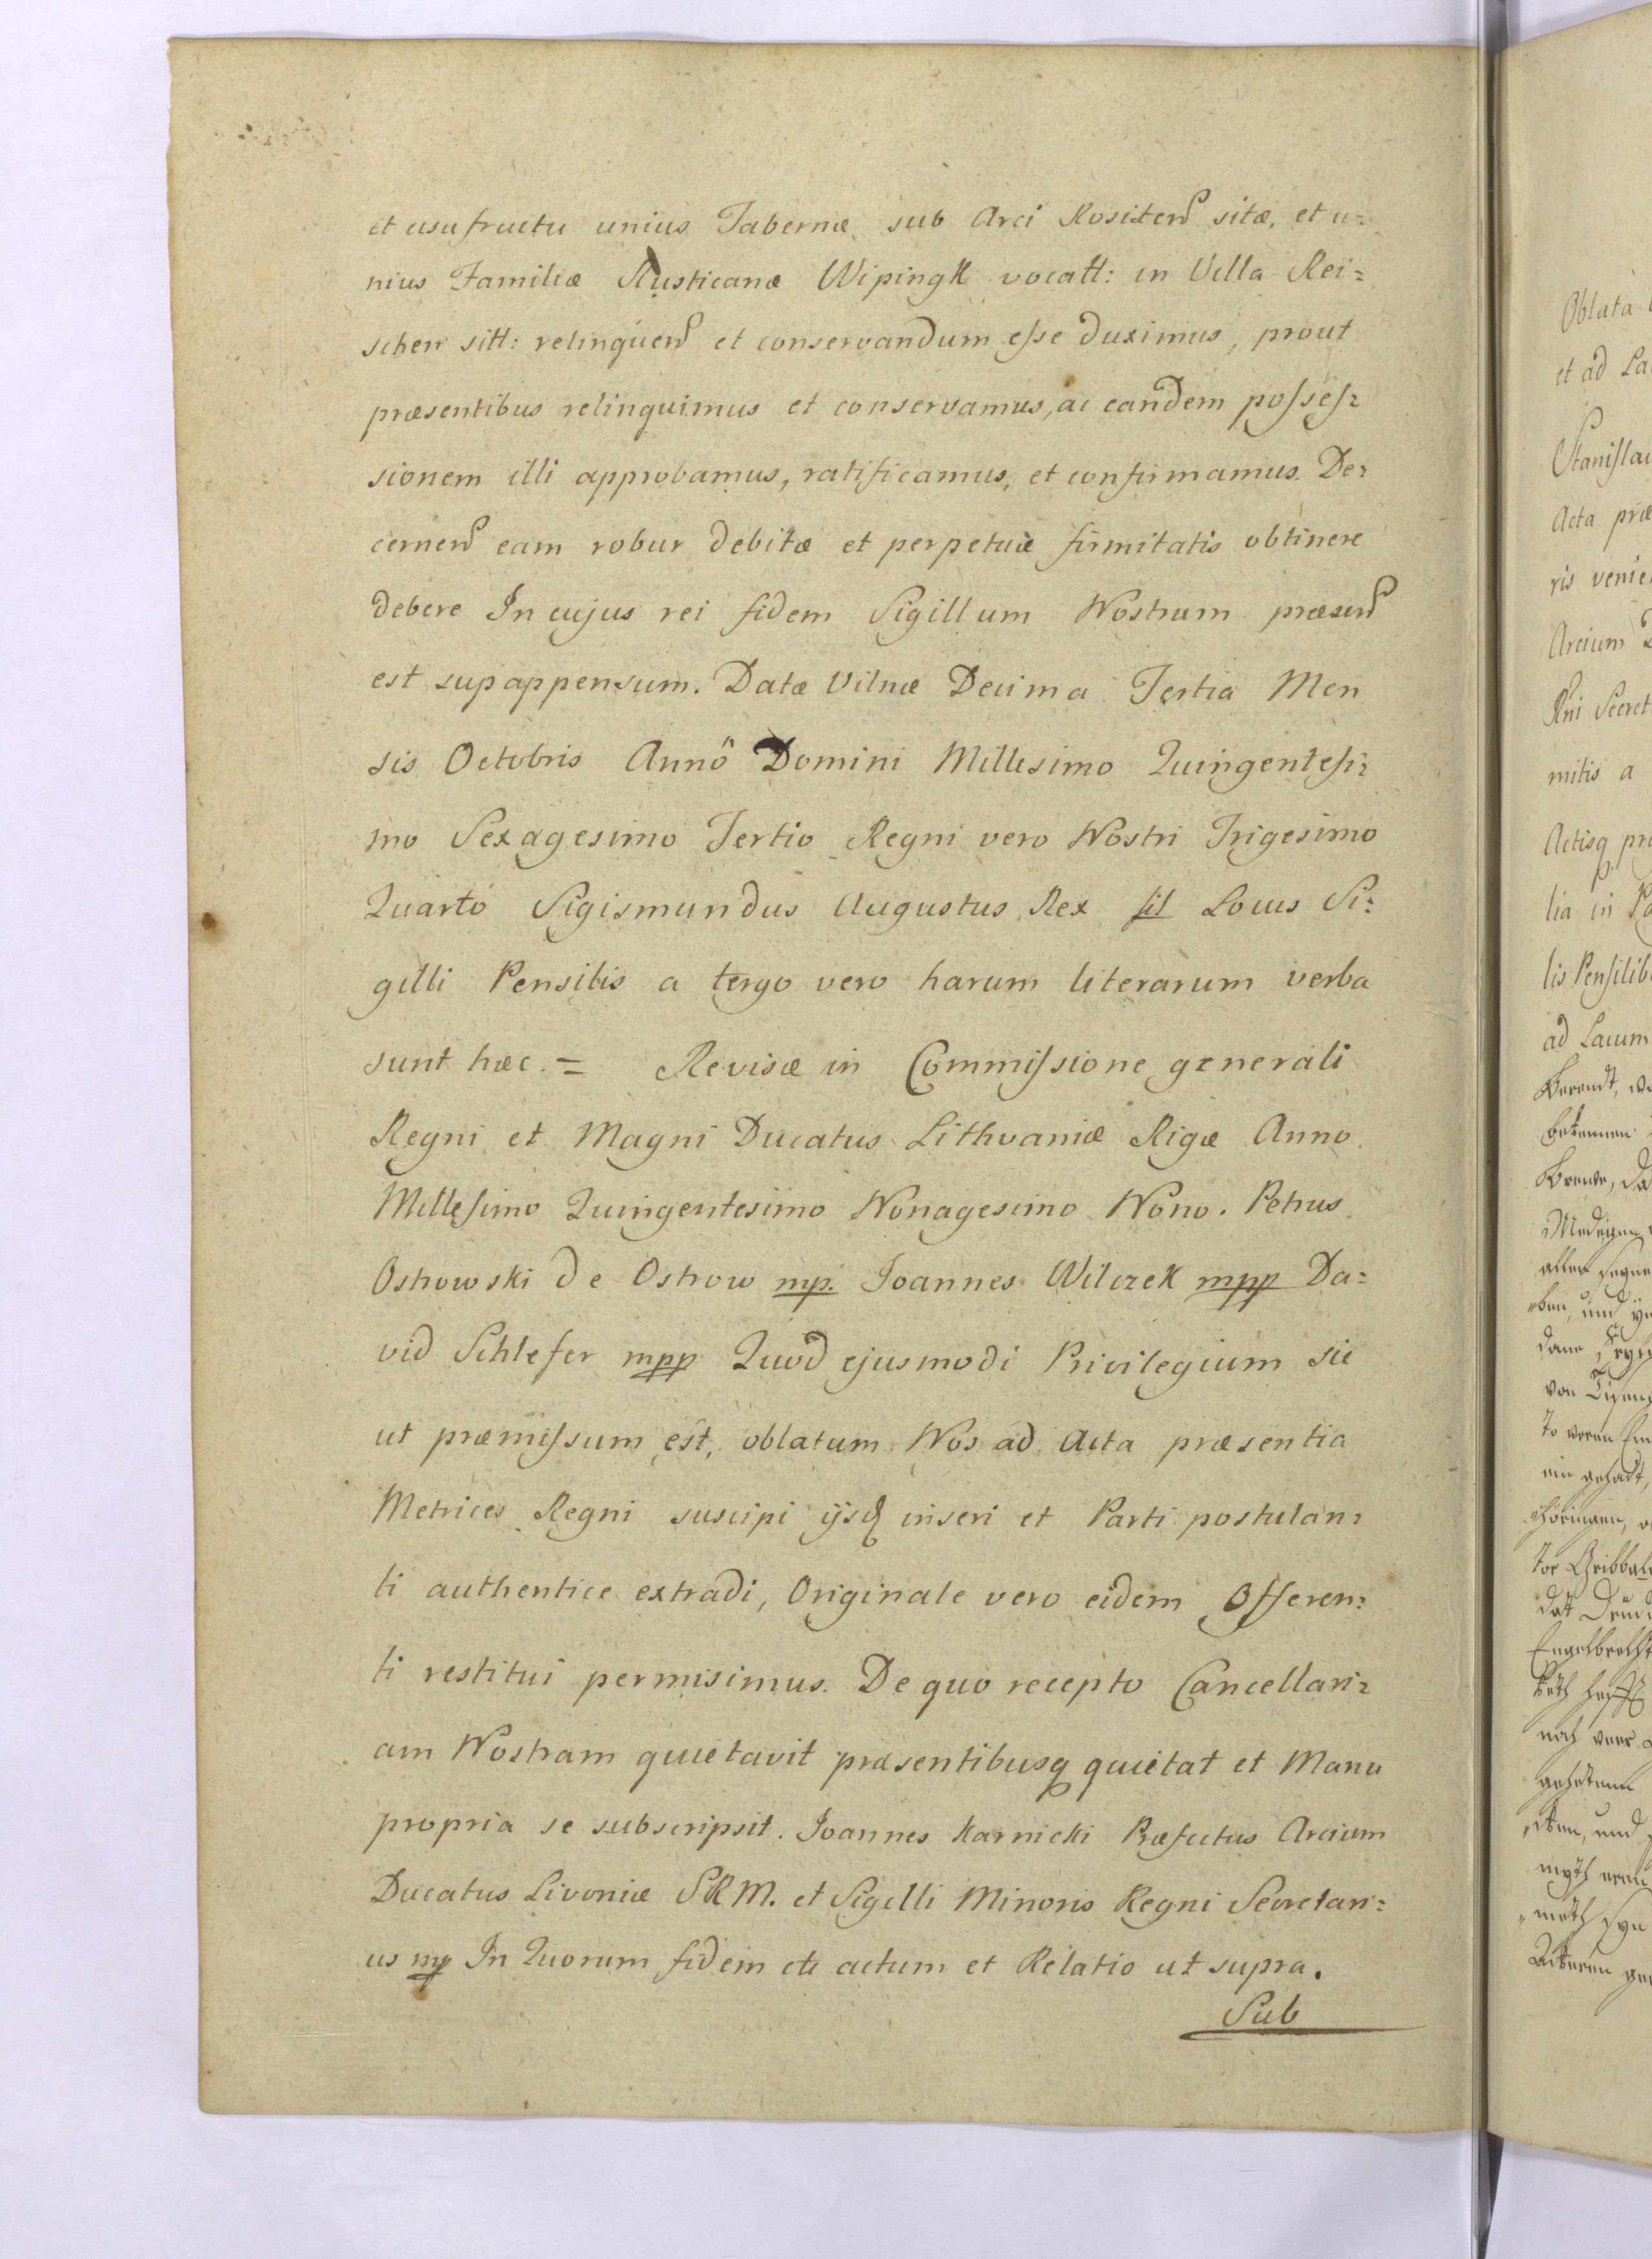 et usufructu unius Tabernæ sub Arci Rositen sitæ, et u=
nius Familiæ Rusticanæ Wipingk vocatt: in Villa Rei=
schen sitt: relinquen et conservandum eſse duximus, prout
præsentibus relinquimus et conservamus, ac eandem poſseſ=
sionem illi approbamus, ratificamus, et confirmamus. De=
cernen eam robur debitæ et perpetuæ firmitatis obtinere
debere In cujus rei fidem Sigillum Nostrum præsen
est supappensum. Datæ Vilnæ Decima Tertia Men
sis Octobris Anno Domini Millesimo Quingenteſi=
mo Sexagesimo Tertio Regni vero Nostri Trigesimo
Quarto Sigismundus Augustus Rex Locus Si=
gilli Pensilis a tergo vero harum literarum verba
sunt hæc. = Revisæ in Commiſsione generali
Regni et Magni Ducatus Lithvaniæ Rigæ Anno
Milleſimo Quingentesimo Nonagesimo Nono. Petrus
Ostrowski de Ostrow mp. Joannes Wilczek mpp Da=
vid Schlefer mpp Quod ejusmodi Privilegium sic
ut præmiſsum est, oblatum Nos ad Acta præsentia
Metrices Regni suscipi ijsq inseri et Parti postulan=
ti authentice extradi, Originale vero eidem Offeren=
ti restitui permisimus. De quo recepto Cancellari=
am Nostram quietavit præsentibusq quietat et Manu
propria se subscripsit. Joannes Karnicki Præfectus Arcium
Ducatus Livoniæ SRM. et Sigilli Minoris Regni Secretari=
us mp In Quorum fidem etc actum et Relatio ut supra.
Sub
Oblata
et ad La
Stanislai
Acta præ
ris venien
Arcium
Rni Secret
mitis a
Actisq pro
lia in Pa
lis Penſilib
ad Lacum